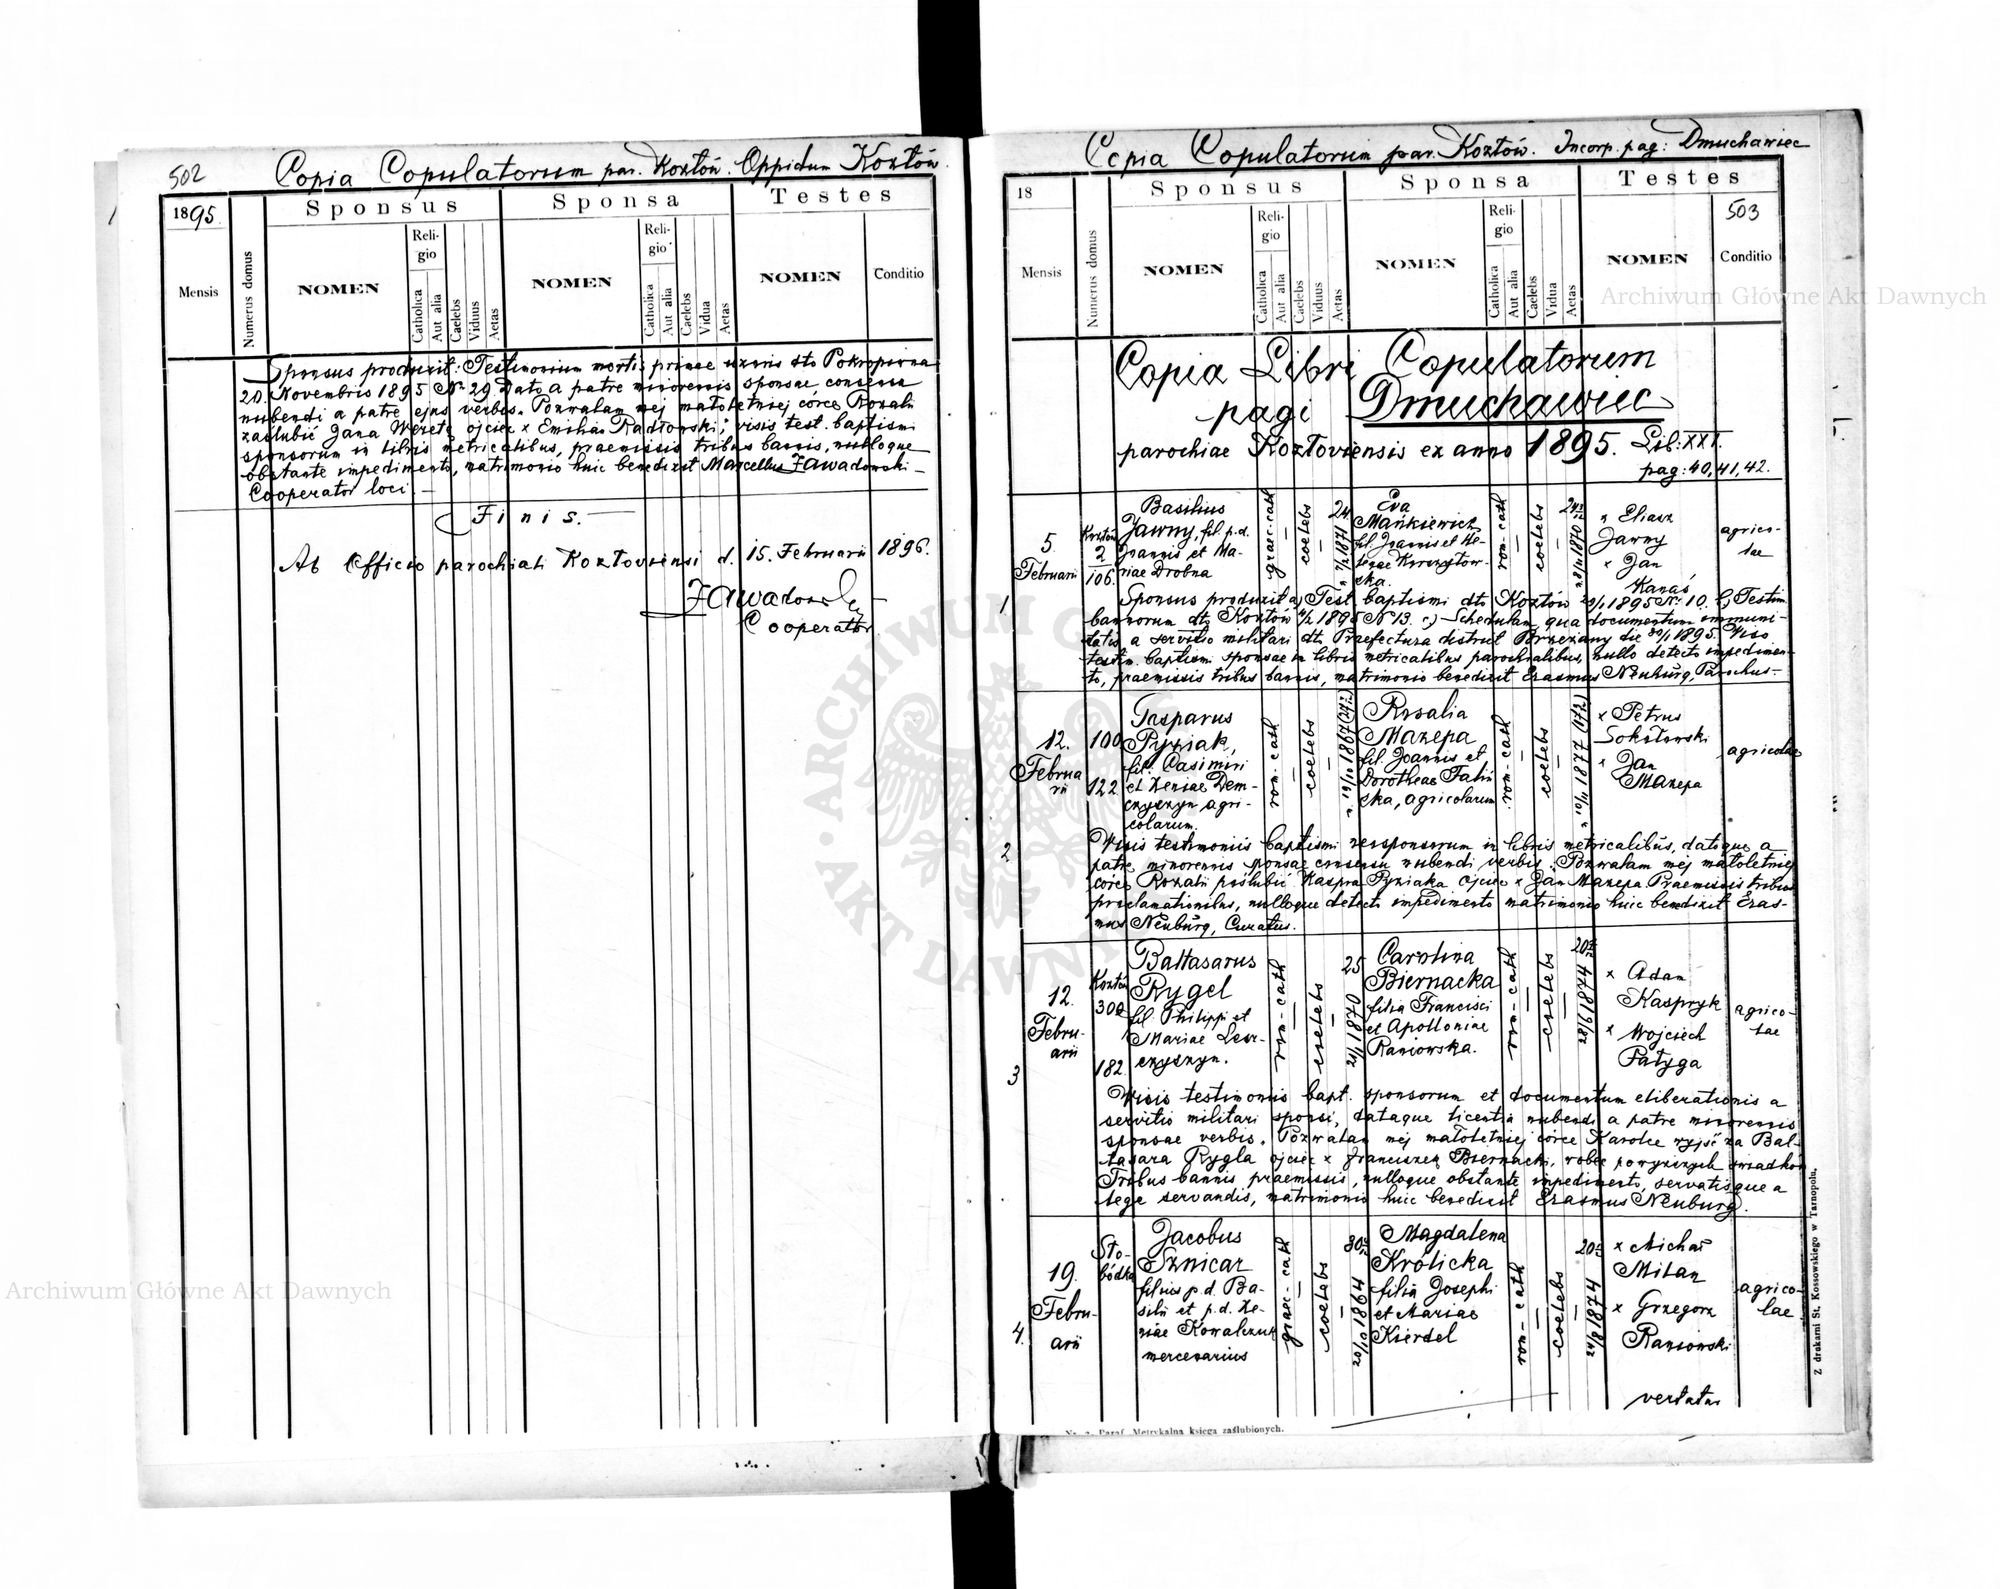 502
Copia Copulatorum par. Kozłów. Oppidum Kozłów.
1895.
Mensis
Numerus domus
Sponsus
NOMEN
Religio
Catholica
Aut alia
Caelebs
Viduus
Aetas
Sponsa
NOMEN
Religio
Catholica
Aut alia
Caelebs
Vidua
Aetas
Testes
NOMEN
Conditio
Sponsus produxit: Testimonium mortis primae uxoris dto Pokropivna
20. Novembris 1895 № 29. Dato a patre minorennis sponsae consensu
nubendi a patre ejus verbis. Pozwalam mej małoletniej córce Rozalii
zaślubić Jana Weretę ojciec x Emilian Radłowski; visis test. baptismi
sponsorum in libris metricalibus, praemissis tribus bannis, nulloque
obstante impedimento, matrimonio huic benedixit Marcellus Zawadowski –
Cooperator loci. –
Finis. –
Ab Officio parochiali Kozłoviensi d. 15. Februarii 1896.
Zawadowski
Cooperator
Copia Copulatorum par. Kozłów. Incorp. pag: Dmuchawiec
18
503
Mensis
Numerus domus
Sponsus
NOMEN
Religio
Catholica
Aut alia
Caelebs
Viduus
Aetas
Sponsa
NOMEN
Religio
Catholica
Aut alia
Caelebs
Vidua
Aetas
Testes
NOMEN
Conditio
Copia Libri Copulatorum
pagi Dmuchawiec
parochiae Kozłoviensis ex anno 1895. Lib: XXI.
pag: 40, 41, 42.
1
5.
Februarii
Kozłów
2
106.
Basilius
Jawny, fil. p.d.
Joannis et Ma-
riae Drobna
graec-cath
coelebs
24
Eva
Mańkiewicz
fil. Joannis et He-
lenae
rom-cath
coelebs
x Eliasz
Jawny
x Jan
Kanaś
agrico-
lae
Sponsus produxit a) Test. baptismi dto Kozłów 20/1 1895 № 10. b) Testim.
bannorum dto Kozłów 4/2 1895 № 13. c) Schedulam qua documentum immuni-
tatis a servitio militari dt. Praefectura district Brzeżany die 30/1 1895. Viso
testim. baptismi sponsae in libris metricalibus parochialibus, nullo detecto impedimen-
to, praemissis tribus bannis, matrimonio benedixit Erasmus Neuburg, Parochus. –
2
12.
Februa
rii
100
122
Gasparus
Pyziak,
fil. Casimiri
et Xeniae Dem-
czyszyn agri-
colarum.
rom-cath
coelebs
Rosalia
Mazepa
fil. Joannis et
Dorotheae
agricolarum
rom-cath
coelebs
x Petrus
Sokołowski
x Jan
Mazepa
agricolae
Visis testimoniis baptismi neosponsorum in libris metricalibus, datoque a
patre minorennis sponsae consensu nubendi verbis: Pozwalam mej małoletniej
córce Rozalii poślubić Kaspra Pyziaka Ojciec x Jan Mazepa. Praemissis tribus
proclamationibus, nulloque detecto impedimento matrimonio huic benedixit Eras-
mus Neuburg, Curatus.
3
12.
Febru-
arii
Kozłów
300
182.
Baltasarus
Rygel
fil. Philippi et
Mariae Lew-
czyszyn.
rom-cath
coelebs
25
Carolina
Biernacka
filia Francisci
et Apolloniae
Raniowska.
rom-cath
coelebs
x Adam
Kaspryk
x Wojciech
Pałyga
agrico-
lae
Visis testimoniis bapt. sponsorum et documentum eliberationis a
servitio militari sponsi, dataque licentia nubendi a patre minorennis
sponsae verbis. Pozwalam mej małoletniej córce Karolce wyjść za Bal-
tasara Rygla ojciec x Franciszek Biernacki, wobec powyższych świadków
Tribus bannis praemissis, nulloque obstante impedimento, servatisque a
lege servandis, matrimonio huic benedixit Erasmus Neuburg.
4.
19.
Febru-
arii
Sło-
bódka
Jacobus
Sznicar
filius p.d. Ba-
silii et p.d. Xe-
niae Kowalczuk
mercenarius
graec-cath
coelebs
20/10 1864
Magdalena
Królicka
filia Josephi
et Mariae
Kierdel
rom-cath
coelebs
24/8 1874
x Michał
Milan
x Grzegorz
Raniowski
agrico-
lae
vertatur
Z drukarni St. Kossowskiego w Tarnopolu.
Nr. 2. Paraf. Metrykalna księga zaślubionych.
Archiwum Główne Akt Dawnych
Archiwum Główne Akt Dawnych
ARCHIWUM GŁÓWNE AKT DAWNYCH